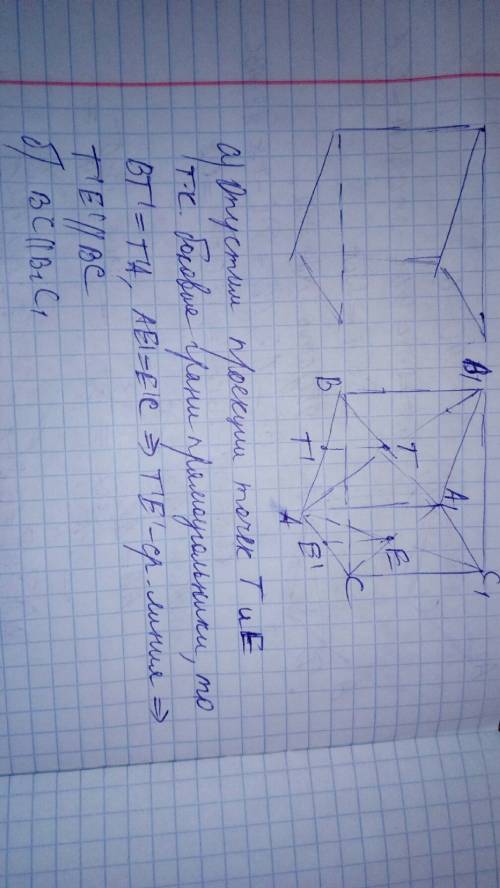 B₁
A₁
C₁
T
E
B
T'
A
E'
C
а) Опустим проекции точек T и E
т.к. боковые грани прямоугольники, то
BT' = T'A, AE' = E'C ⇒ T'E' - ср. линия ⇒
T'E' || BC
б) BC || B₁C₁